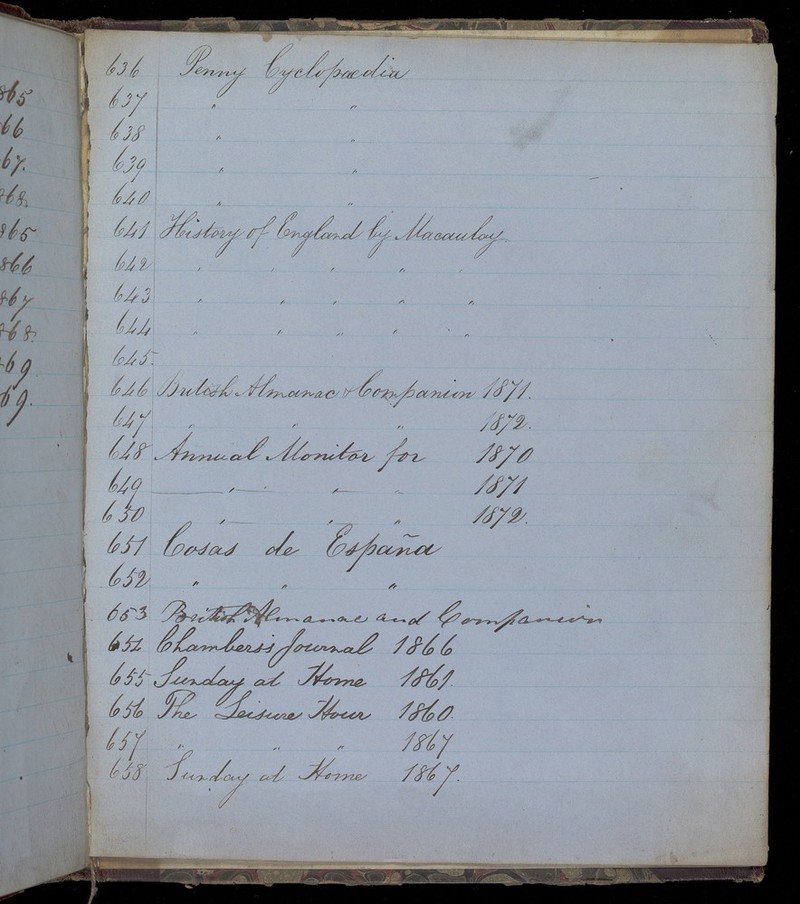 865
66
67.
868.
865
866
867
868.
69
69.
636 Penny Cyclopaedia
637 " "
638 " "
639 " "
640 " "
641 History of England by Macaulay
642 " " " " "
643 " " " " "
644 " " " " " "
645.
646 British Almanac & Companion 1871.
647 " " " 1872.
648 Annual Monitor for 1870
649 " " " 1871
650 " " " 1872.
651 Cosas de España
652 " " "
653 British Almanac and Companion
654 Chambers's Journal 1866
655 Sunday at Home 1861.
656 The Leisure Hour 1860.
657 " " " 1867
658 Sunday at Home 1867.